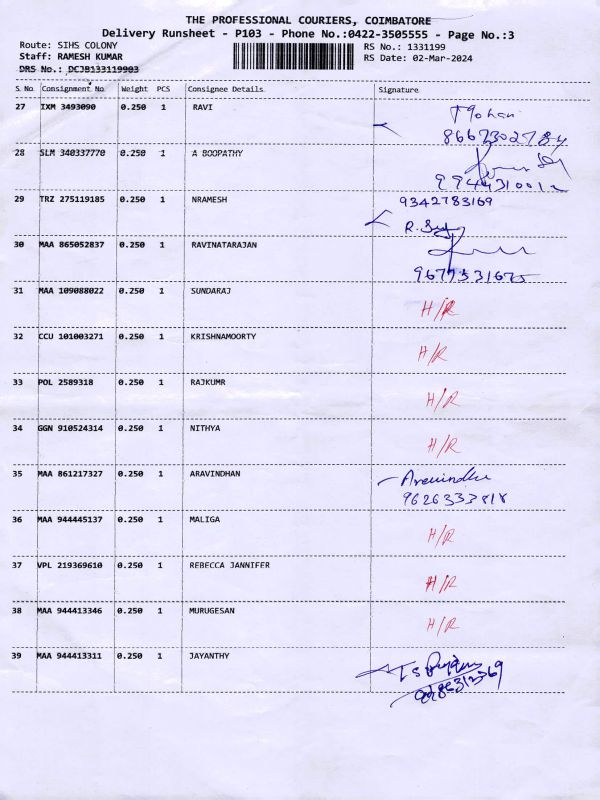 THE PROFESSIONAL COURIERS, COIMBATORE
Delivery Runsheet - P103 - Phone No.:0422-3505555 - Page No.:3
Route: SIHS COLONY RS No.: 1331199
Staff: RAMESH KUMAR RS Date: 02-Mar-2024
DRS No.: DCJB133119903
S.No Consignment No Weight PCS Consignee Details Signature
27 IXM 3493090 0.250 1 RAVI
28 SLM 340337770 0.250 1 A BOOPATHY
29 TRZ 275119185 0.250 1 NRAMESH 9342783169
30 MAA 865052837 0.250 1 RAVINATARAJAN
31 MAA 109088022 0.250 1 SUNDARAJ H/R
32 CCU 101003271 0.250 1 KRISHNAMOORTY H/R
33 POL 2589318 0.250 1 RAJKUMR H/R
34 GGN 910524314 0.250 1 NITHYA H/R
35 MAA 861217327 0.250 1 ARAVINDHAN
9626333818
36 MAA 944445137 0.250 1 MALIGA H/R
37 VPL 219369610 0.250 1 REBECCA JANNIFER H/R
38 MAA 944413346 0.250 1 MURUGESAN H/R
39 MAA 944413311 0.250 1 JAYANTHY